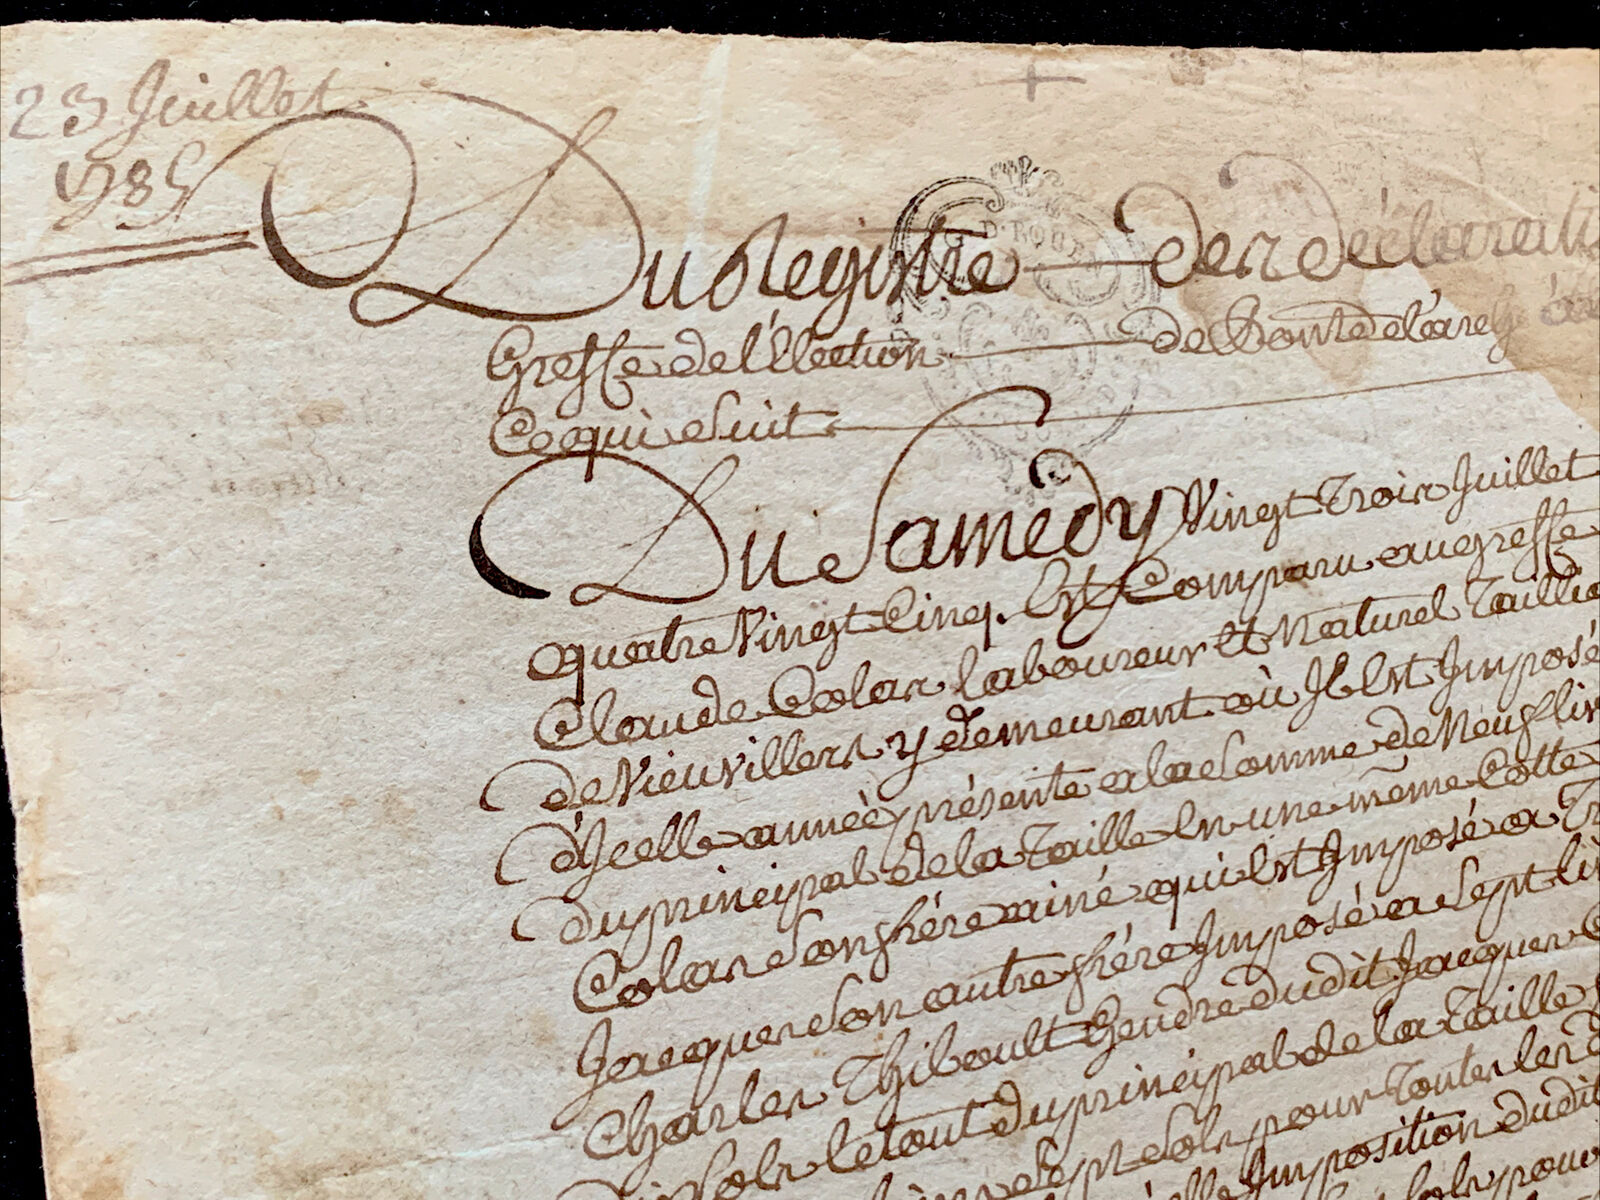 23 Juillet
1785
Du Registre des déclarati
Greffe de l'Election de Pontdelarch
Ce qui Suit
Du Samedy Vingt Trois Juillet
quatre Vingt Cinq. Est Comparu au greffe
Claude Colas laboureur Et Naturel Taillia
de Vieuvillers y demeurant où Il Est Imposé
d'Icelle année présente a la Somme de Neuf liv
du principal de la Taille En une même Cotte
Colas Son frére ainé qui Est Imposé a Tr
Jacques Son autre frére Imposé a Sept liv
Charles Thibault Gendre dudit Jacques C
Sols le tout du principal de la Taille
Sept Sols pour Toutes les
Imposition dudit
Sols pour